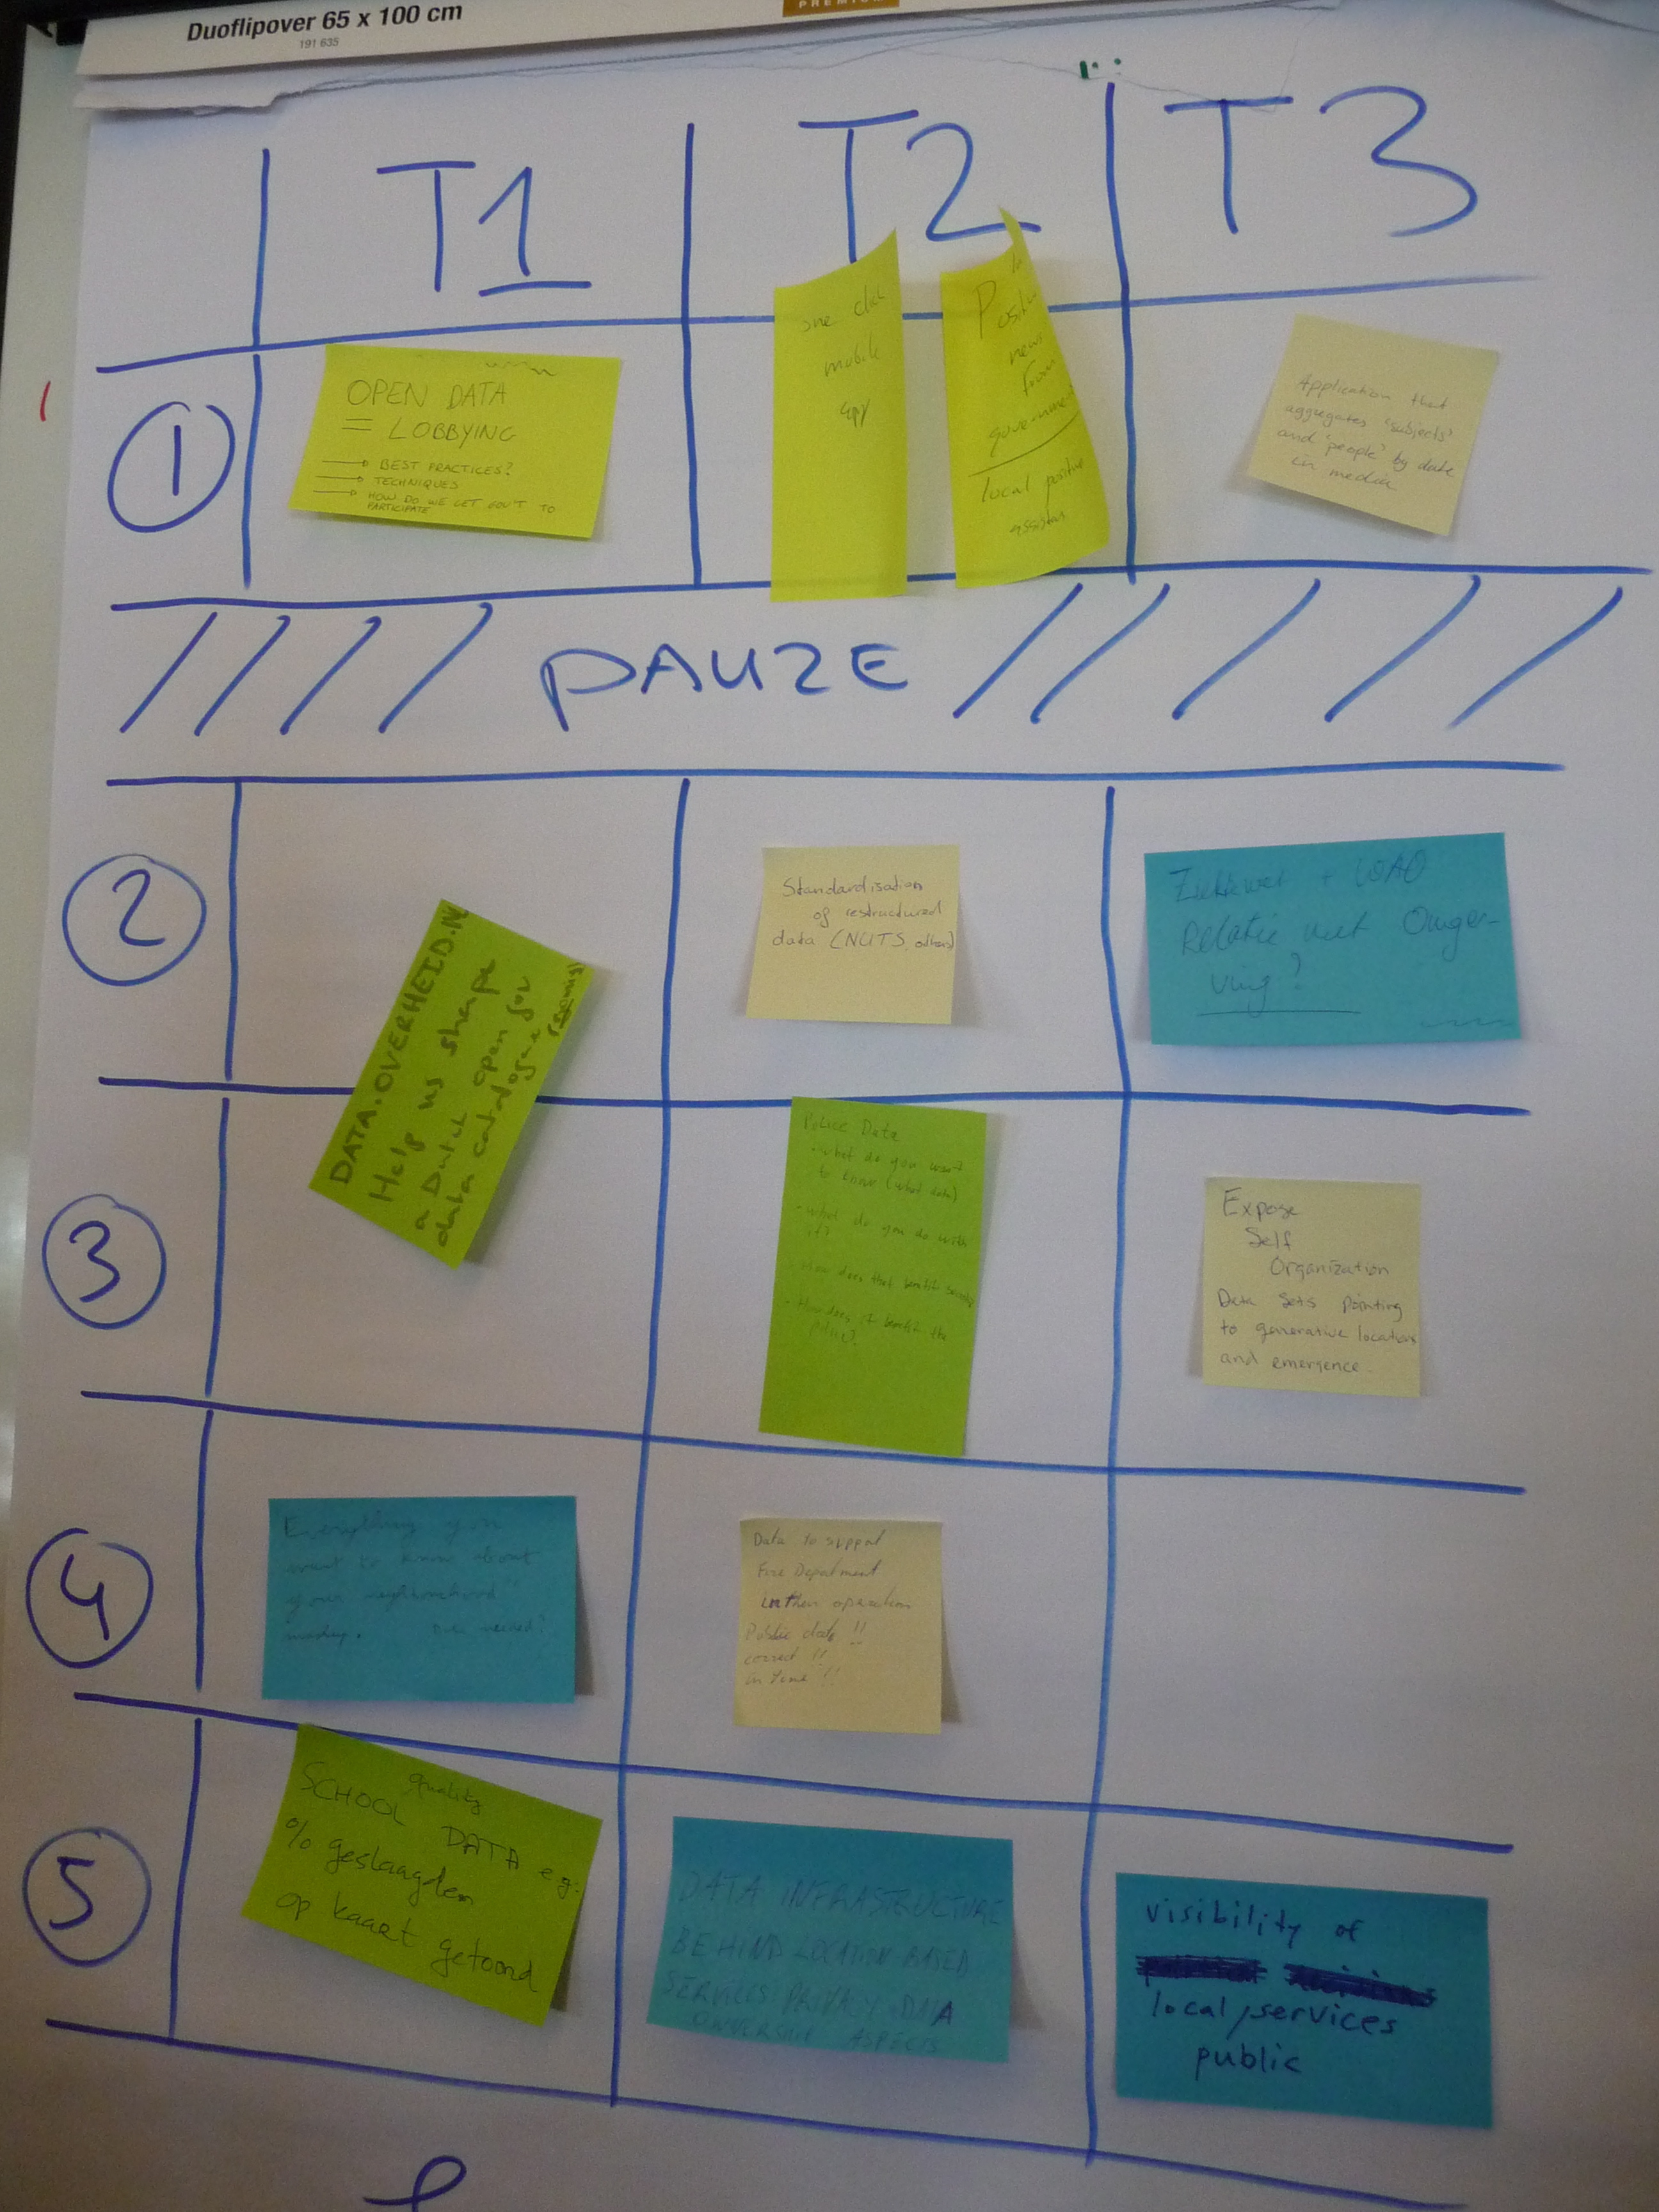 Duoflipover 65 x 100 cm
191 635
PREMIUM
T1
T2
T3
1
OPEN DATA
= LOBBYING
BEST PRACTICES?
TECHNIQUES
HOW DO WE GET GOV'T TO
PARTICIPATE
one click
mobile
app
Positive
news
from
government
local positive
Application that
aggregates 'subjects'
and 'people' by date
in media
PAUZE
2
DATA.OVERHEID.N
Help us shape
a Dutch open gov
data catalogue
Standardisation
of restructured
data (NUTS, others)
+ WAO
Relatie met Omge-
ving?
3
Police Data
- what do you want
to know (what data)
- what do you do with
it?
- How does that benefit society
- How does it benefit the
police?
Expose
Self
Organization
Data Sets pointing
to generative location
and emergence
4
Everything you
want to know about
your neighbourhood"
needed?
Data to support
Fire Department
in their operation
Public data !!
correct !!
in time !!
5
quality
SCHOOL DATA e.g.
% geslaagden
op kaart getoond
DATA INFRASTRUCTURE
BEHIND LOCATION BASED
SERVICES: PRIVACY + DATA
OWNERSHIP ASPECTS
visibility of
local/services
public